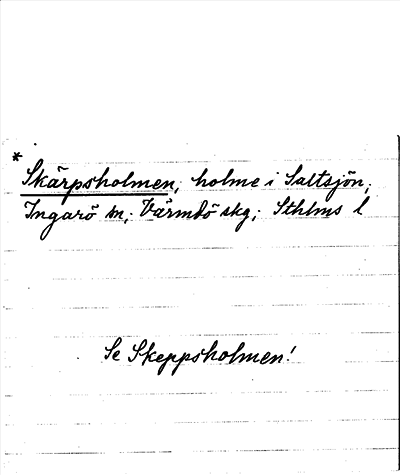 * Skärpsholmen, holme i Saltsjön,
Ingarö sn, Värmdö skg, Sthlms l
Se Skeppsholmen!